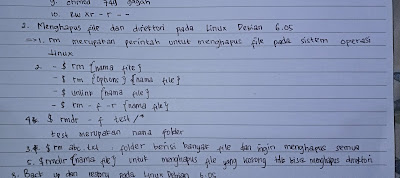 9. chmod 749 gagah
10. rw xr - r - -
2. Menghapus file dan direktori pada Linux Debian 6.05
=> 1. rm merupakan perintah untuk menghapus file pada sistem operasi
linux
2. - $ rm {nama file}
- $ rm {options} {nama file}
- $ unlink {nama file}
- $ rm - f - r {nama file}
4. $ rmdir - f test /*
test merupakan nama folder
3. $ rm abc.txt : folder berisi banyak file dan ingin menghapus semua
5. $ rmdir {nama file} untuk menghapus file yang kosong tdk bisa menghapus direktori
3. Back up dan restore pada Linux Debian 6.05